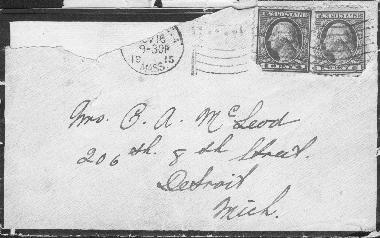 9-30P
19 15
MASS.
U.S. POSTAGE U.S. POSTAGE
Mrs. B. A. McLeod
206 th. 8 th Street.
Detroit
Mich.